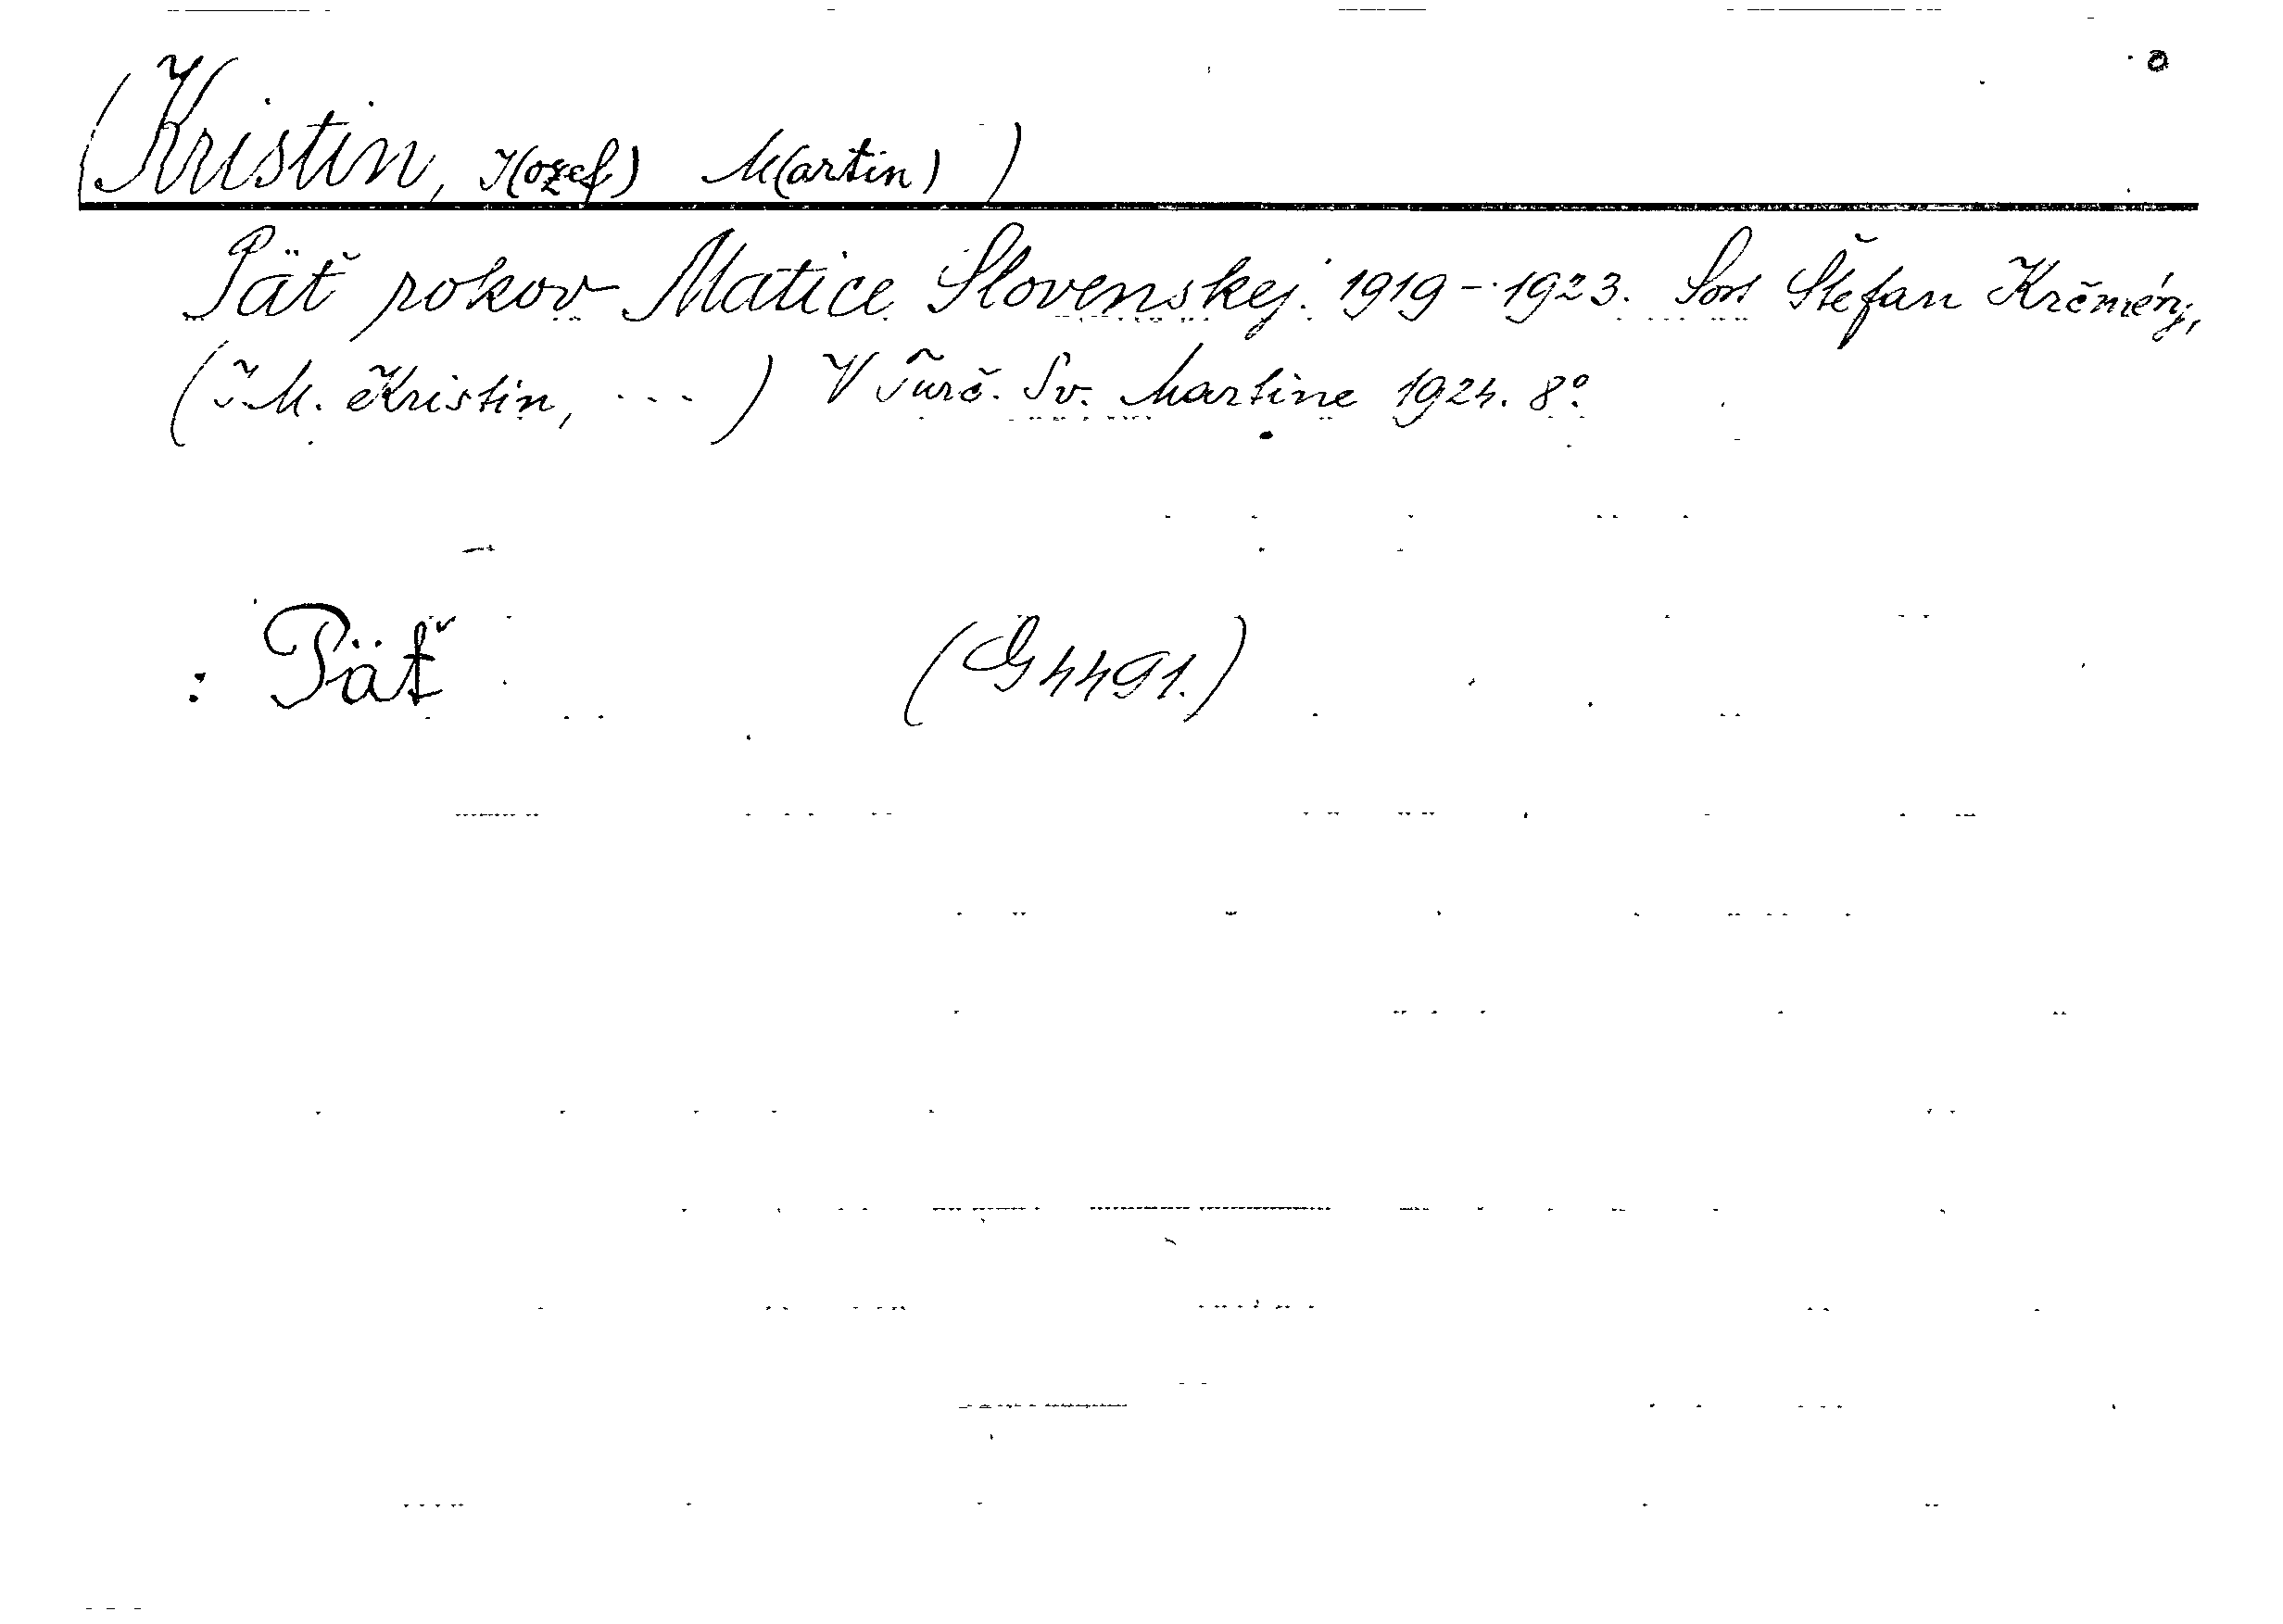 (Kristin, J(ozef) M(artin) )
Päť rokov Matice Slovenskej. 1919-1923. Sost Štefan Krčméry,
(J.M. Kristin, ...) V Turč. Sv. Martine 1924. 8°.
: Päť (G 4491.)